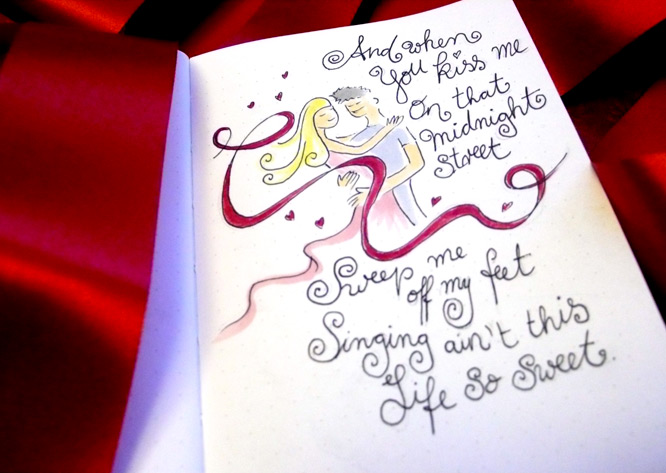 And when
You kiss me
On that
midnight
street
Sweep me
off my feet
Singing ain't this
Life so sweet.